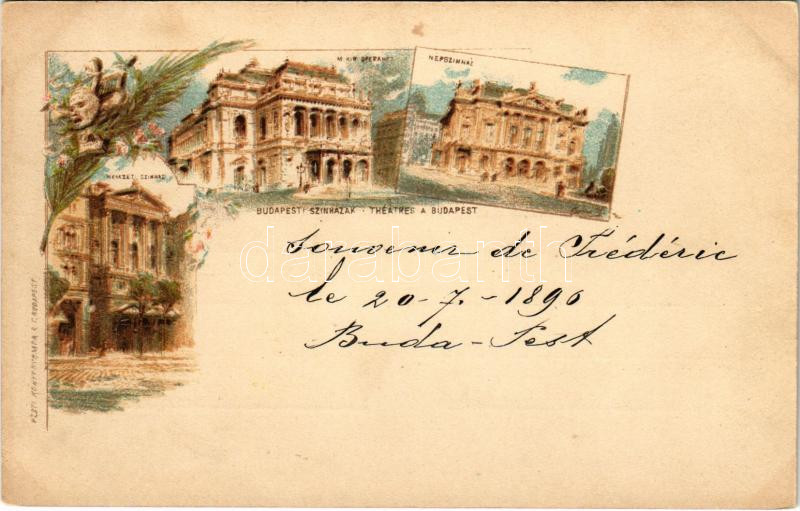 M. KIR. OPERAHÁZ
NÉPSZINHÁZ
NEMZETI SZINHÁZ
BUDAPESTI SZINHÁZAK · THÉATRES A BUDAPEST
Souvenir de Frédéric
le 20-7.-1896
Buda-Pest
PESTI KÖNYVNYOMDA R. T. BUDAPEST.
darabanth